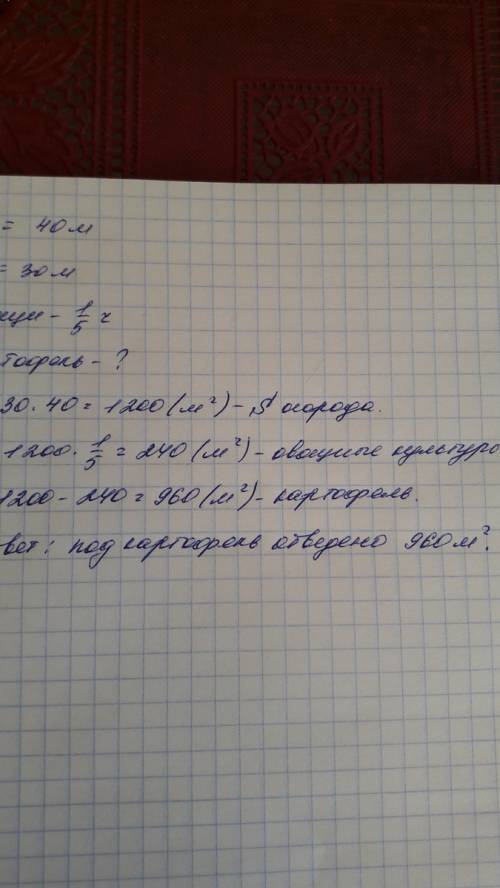 = 40м
= 30м
ощи - 1/5 ч
тофель - ?
30 · 40 = 1200 (м²) - S огорода.
1200 · 1/5 = 240 (м²) - овощные культуры
1200 - 240 = 960 (м²) - картофель.
вет: под картофель отведено 960 м².